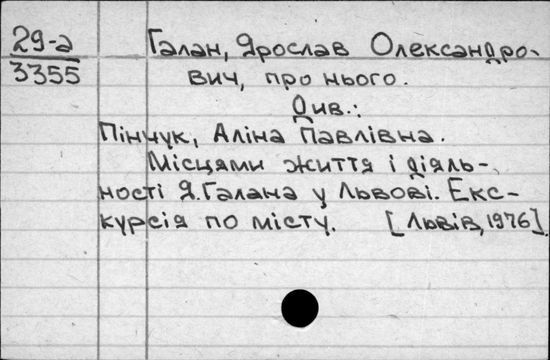 29-а
3355
Галан, Ярослав Олександро-
вич, про нього.
Див.:
Пінчук, Аліна Павлівна.
Місцями життя і діяль-
ності Я. Галана у Львові. Екс-
курсія по місту. [Львів, 1976].